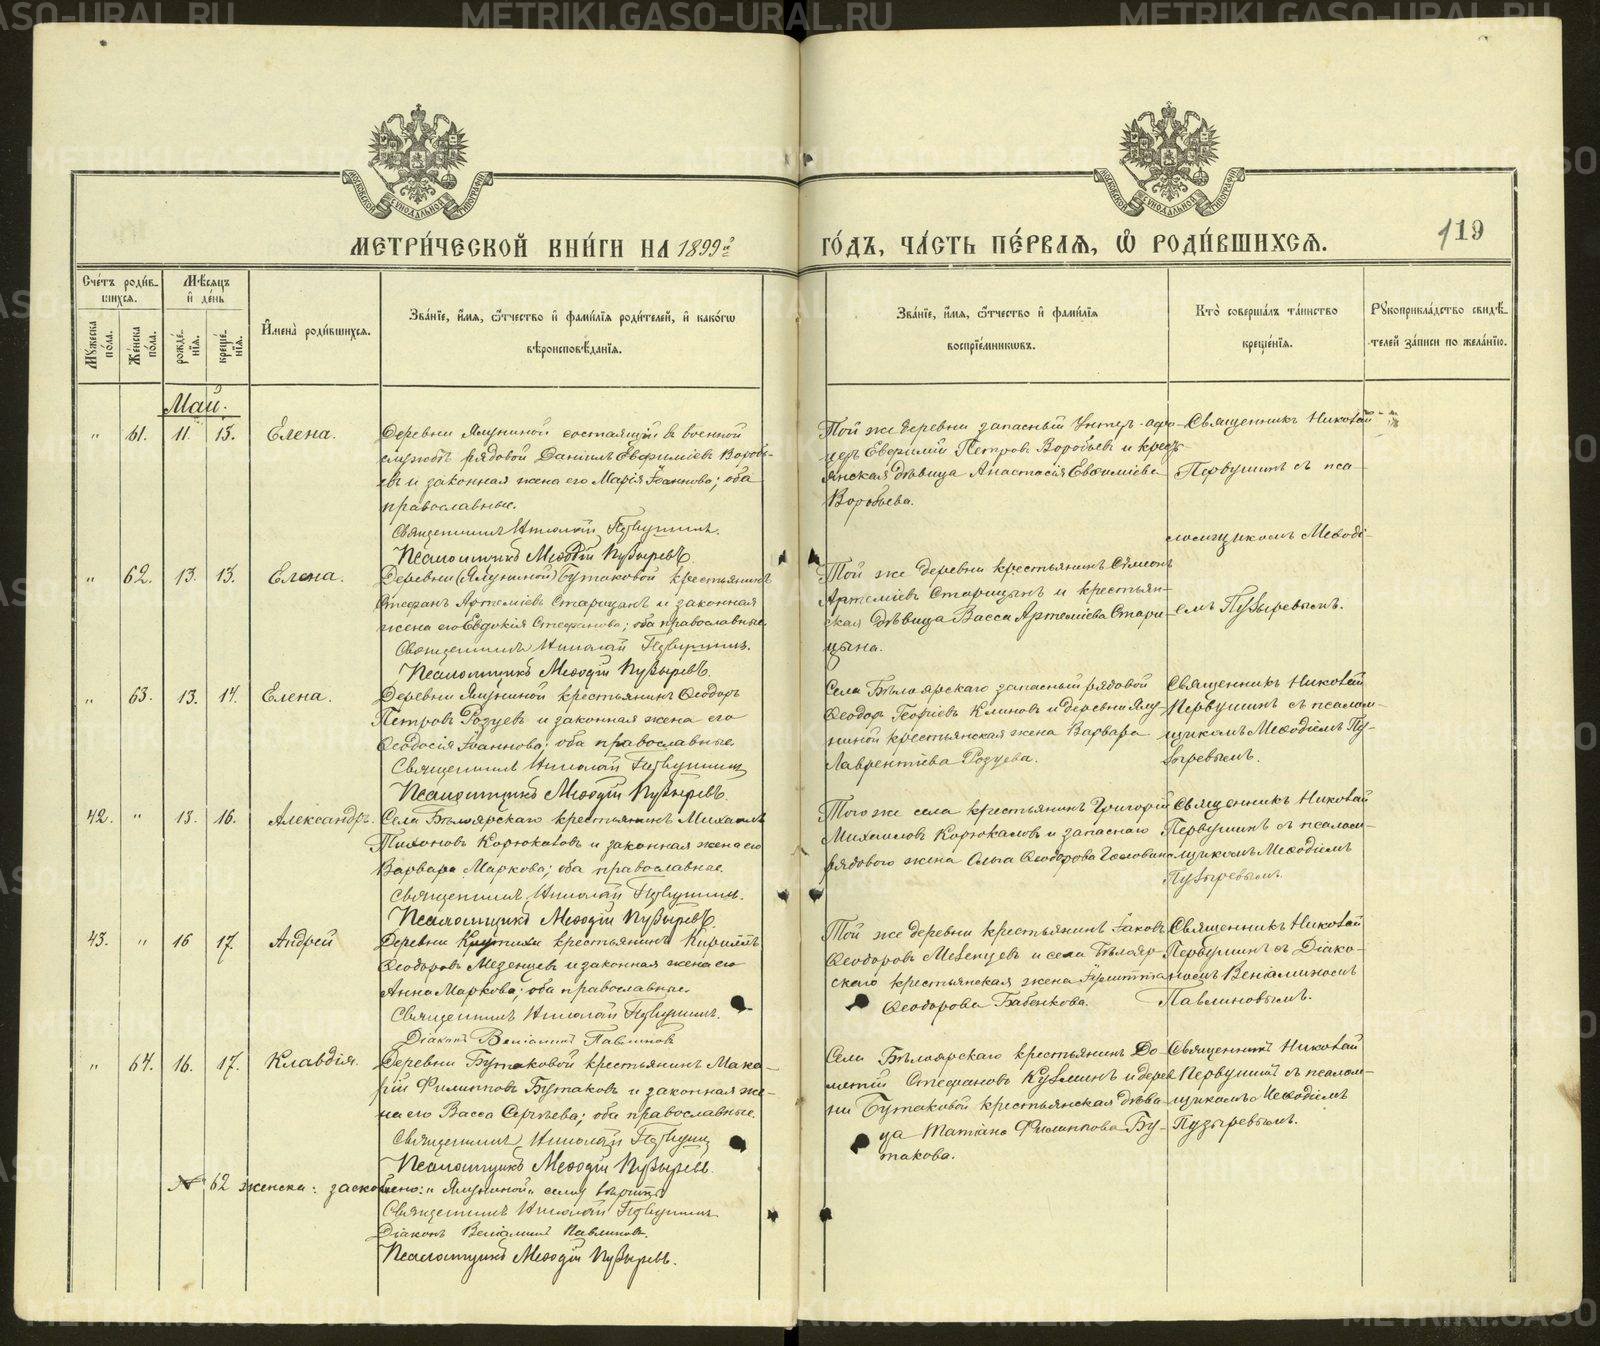 МЕТРИ́ЧЕСКОЙ КНИ́ГИ НА 1899 й
ГО́ДЪ, ЧА́СТЬ ПЕ́РВАЯ, Ѡ РОДИ́ВШИХСЯ.
119
Сче́тъ роди́в-
шихся.
Мѣ́сяцъ
и҆ де́нь
Му́жеска по́ла.
Же́нска по́ла.
рожде́-нїя.
креще́-нїя.
И҆мена̀ роди́вшихся.
Зва́нїе, и҆́мя, ѻ҆́тчество и҆ фами́лїя роди́телей, и҆ како́гѡ
вѣроисповѣ́данїя.
Зва́нїе, и҆́мя, ѻ҆́тчество и҆ фами́лїя
воспрїе́мникѡвъ.
Кто̀ соверша́лъ та́инство
креще́нїя.
Рꙋкоприкла́дство свидѣ́-
телей за́писи по жела́нїю.
Май.
" 61. 11. 13. Елена.
Деревни Ялуниной состоящій въ военной
службѣ рядовой Даніилъ Евфиміевъ Воробь-
евъ и законная жена его Марія Іоаннова; оба
православные.
Священникъ Николай Первушинъ.
Псаломщикъ Меѳодій Пузыревъ
Той же деревни запасный Унтер-офи-
церъ Евфимій Петровъ Воробьевъ и крест-
янская дѣвица Анастасія Евфиміева
Воробьева.
Священникъ Николай
Первушинъ съ пса-
ломщикомъ Меѳоді-
емъ Пузыревымъ.
" 62. 13. 13. Елена.
Деревни (Ялуниной) Бутаковой крестьянинъ
Стефанъ Артеміевъ Старицынъ и законная
жена его Евдокія Стефанова; оба православные.
Священникъ Николай Первушинъ.
Псаломщикъ Меѳодій Пузыревъ.
Той же деревни крестьянинъ Сѵмеонъ
Артеміевъ Старицынъ и крестьян-
ская дѣвица Васса Артеміева Стари-
цына.
" 63. 13. 14. Елена.
Деревни Ялуниной крестьянинъ Ѳеодоръ
Петровъ Розуевъ и законная жена его
Ѳеодосія Іоаннова; оба православные.
Священникъ Николай Первушинъ
Псаломщикъ Меѳодій Пузыревъ.
Села Бѣлоярскаго запасный рядовой
Ѳеодоръ Георгіевъ Клиновъ и деревни Ялу-
ниной крестьянская жена Варвара
Лаврентіева Розуева.
Священникъ Николай
Первушинъ съ псалом-
щикомъ Меѳодіемъ Пу-
зыревымъ.
42. " 13. 16. Александръ.
Села Бѣлоярскаго крестьянинъ Михаилъ
Тихоновъ Корюкаловъ и законная жена его
Варвара Маркова; оба православные.
Священникъ Николай Первушинъ.
Псаломщикъ Меѳодій Пузыревъ.
Того же села крестьянинъ Григорій
Михаиловъ Корюкаловъ и запаснаго
рядового жена Ольга Ѳеодорова Головина
Священникъ Николай
Первушинъ съ псалом-
щикомъ Меѳодіемъ
Пузыревымъ.
43. " 16 17. Андрей
Деревни Крутихи крестьянинъ Кириллъ
Ѳеодоровъ Мезенцевъ и законная жена его
Анна Маркова; оба православные.
Священникъ Николай Первушинъ.
Діаконъ Веніаминъ Павлиновъ
Той же деревни крестьянинъ Іаковъ
Ѳеодоровъ Мезенцевъ и села Бѣлояр-
скаго крестьянская жена
Ѳеодорова Бабенкова.
Священникъ Николай
Первушинъ съ Діако-
номъ Веніаминомъ
Павлиновымъ.
" 64. 16. 17. Клавдія.
Деревни Бутаковой крестьянинъ Мака-
рій Филипповъ Бутаковъ и законная же-
на его Васса Сергѣева; оба православные.
Священникъ Николай Первушинъ
Псаломщикъ Меѳодій Пузыревъ.
Села Бѣлоярскаго крестьянинъ До-
метій Стефановъ Кузьминъ и дерев
ни Бутаковой крестьянская дѣви-
ца Татіана Филиппова Бу-
такова.
Священникъ Николай
Первушинъ съ псалом-
щикомъ Меѳодіемъ
Пузыревымъ.
№ 62 женска: заскоблено: "Ялуниной" сему вѣрить
Священникъ Николай Первушинъ
Діаконъ Веніаминъ Павлиновъ.
Псаломщикъ Меѳодій Пузыревъ.